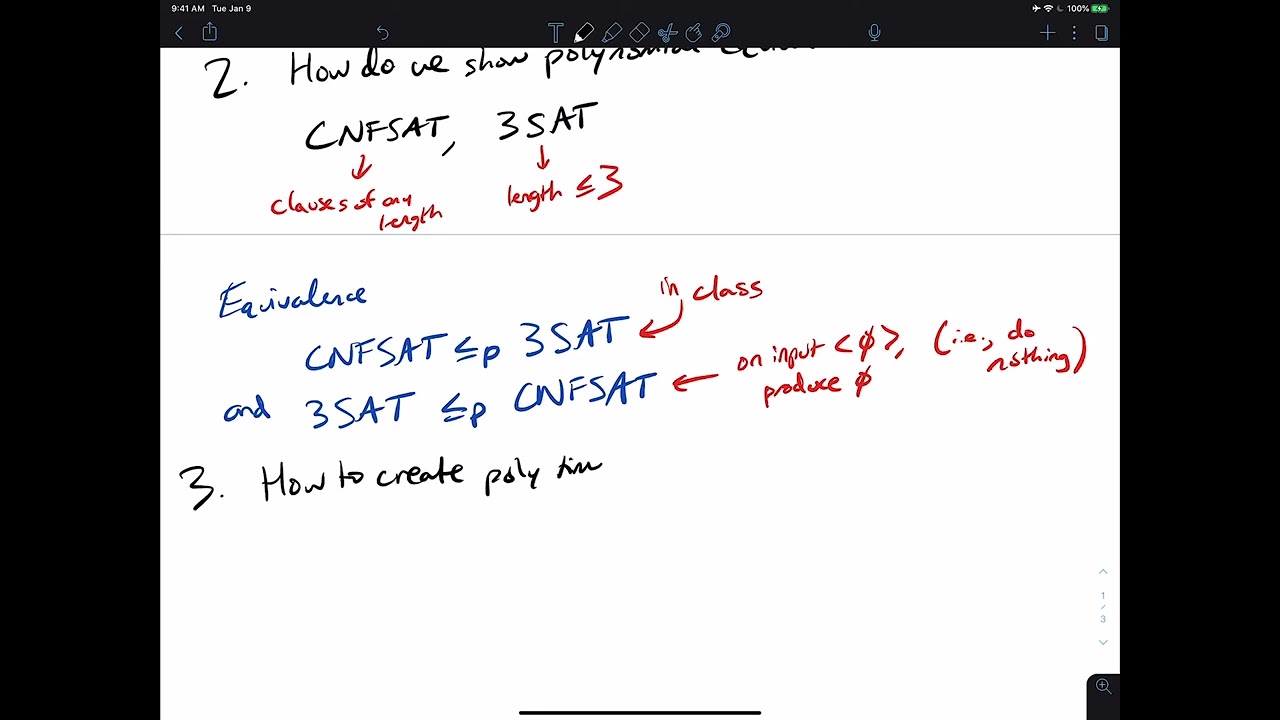 9:41 AM Tue Jan 9
100%
2. How do we show polynomial
CNFSAT, 3SAT
clauses of any length
length ≤3
Equivalence
in class
CNFSAT ≤p 3SAT
on input <ϕ>, (i.e., do nothing)
produce ϕ
and 3SAT ≤p CNFSAT
3. How to create poly time
1
/
3